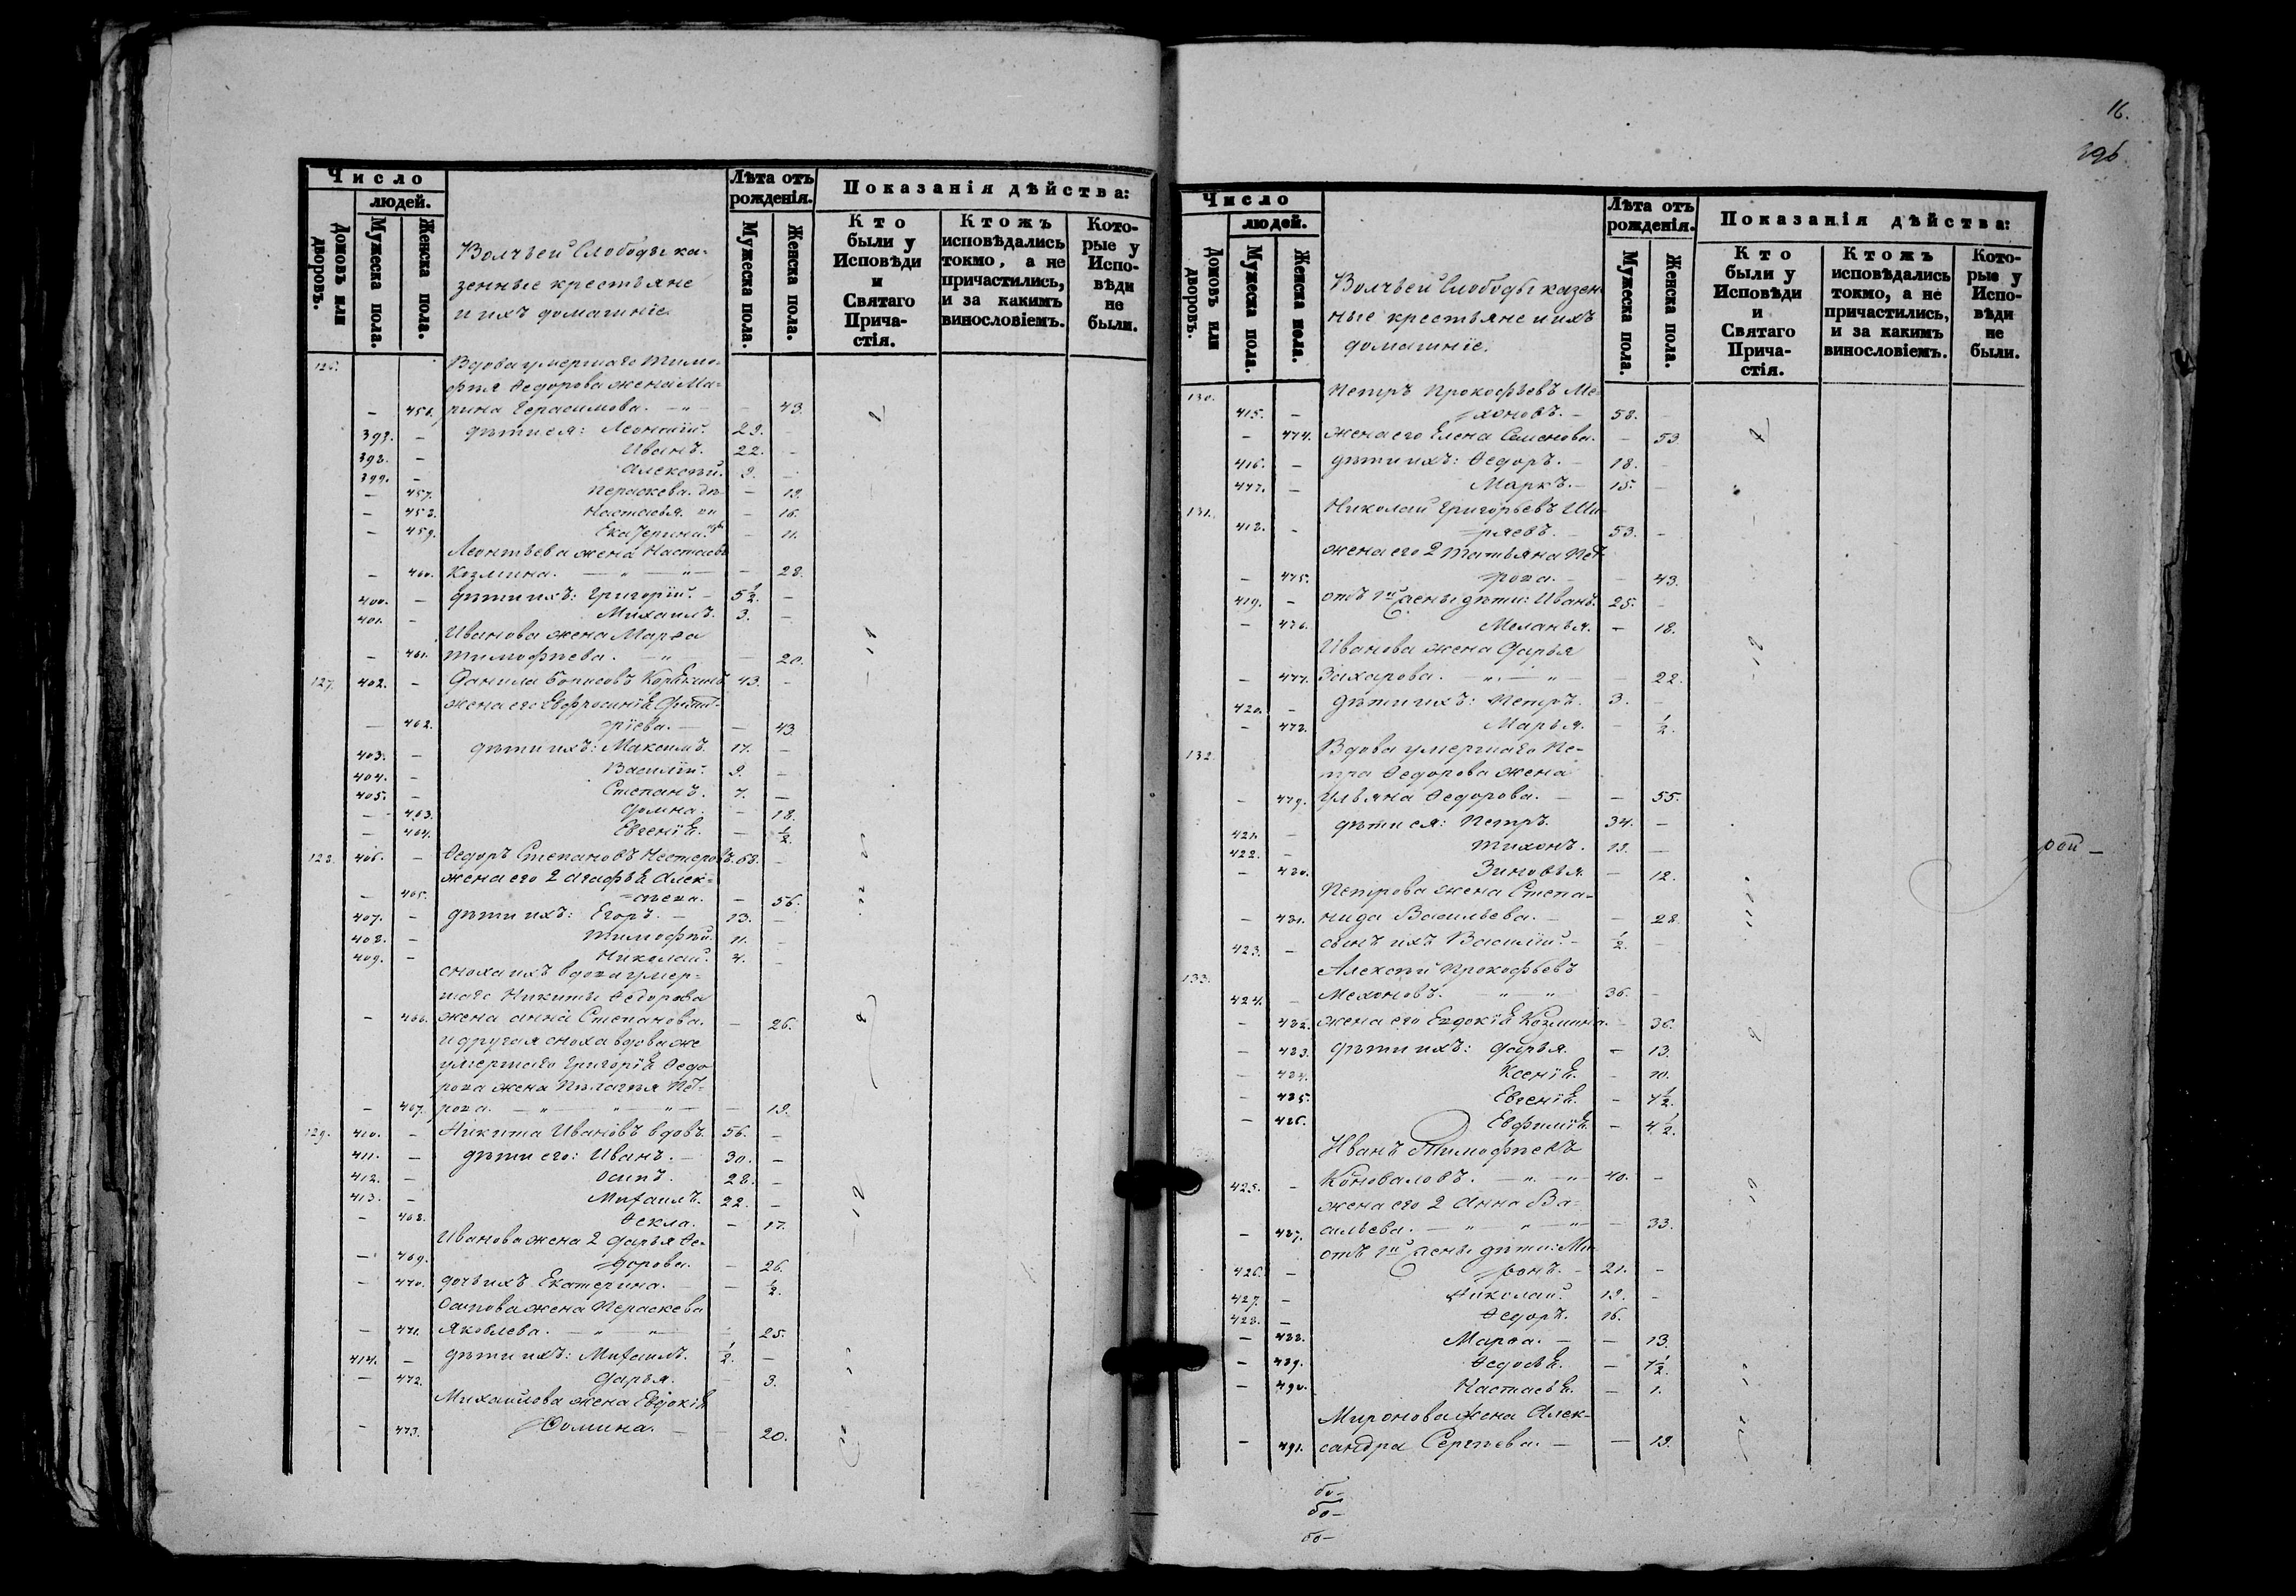 Число
людей.
Домовъ или дворовъ.
Мужеска пола.
Женска пола.
Волчьей Слободы ка-
зенные крестьяне
и ихъ домашніе.
Лѣта отъ рожденія.
Мужеска пола.
Женска пола.
Показанія дѣйства:
Кто были у Исповѣди и Святаго Прича-стія.
Ктожъ исповѣдались токмо, а не причастились, и за какимъ винословіемъ.
Кото-рые у Испо-вѣди не были.
126. Вдова умершаго Тимо-
фѣя Ѳедорова жена Ма-
– 456. рина Герасимова. – „ – – 43.
397. – дѣти ея: Леонтій. 29. –
398. – Иванъ. 22. –
399. – Алексѣй. 9. –
– 457. Пераскева. – 19.
– 458. Настасья. – 16.
– 459. Екатерина. – 11.
Леонтьева жена Настасья
– 460. Козмина. – „ – „ – – 28.
400. – дѣти ихъ: Григорій. 5½. –
401. – Михаилъ. 3. –
Иванова жена Марѳа
– 461. Тимофѣева. – „ – – 20.
127. 402. – Данила Борисовъ 43. –
жена его Евфросинія Дмит-
– 462. ріева. – – 43.
403. – дѣти ихъ: Максимъ. 17. –
404. – Василій. 9. –
405. – Степанъ. 7. –
– 463. Домна. – 18.
– 464. Евгенія. – ½.
128. 406. – Ѳедоръ Степановъ Нестеровъ. 58. –
жена его 2 Агафія Алек-
– 465. сѣева. – 56.
407. – дѣти ихъ: Егоръ. – 13. –
408. – Тимофѣй. 11. –
409. – Николай. 4. –
сноха ихъ вдова умер-
шаго Никиты Ѳедорова
– 466. жена Анна Степанова. – 26.
и другая сноха вдова же
умершаго Григорія Ѳедо-
рова жена Пелагѣя Пет-
– 467. рова. – „ – „ – „ – – 19.
129. 410. – Никита Ивановъ вдовъ. 56. –
411. – дѣти его: Иванъ. – 30. –
412. – Осипъ. 28. –
413. – Михаилъ. 22. –
– 468. Ѳекла. – 17.
Иванова жена 2 Дарья Ѳе-
– 469. дорова. – 26.
– 470. дочь ихъ Екатерина. – ½.
Осипова жена Пераскева
– 471. Яковлева. – „ – „ – – 25.
414. – дѣти ихъ: Михаилъ. ½. –
– 472. Дарья. – 3.
Михайлова жена Евдокія
– 473. Ѳомина. – – 20.
16.
296.
Число
людей.
Домовъ или дворовъ.
Мужеска пола.
Женска пола.
Волчьей Слободы казен
ные крестьяне и ихъ
домашніе.
Лѣта отъ рожденія.
Мужеска пола.
Женска пола.
Показанія дѣйства:
Кто были у Исповѣди и Святаго Прича-стія.
Ктожъ исповѣдались токмо, а не причастились, и за какимъ винословіемъ.
Кото-рые у Испо-вѣди не были.
130. Петръ Прокофьевъ Ме-
415. – хоновъ. – 58. –
– 474. жена его Елена Семенова. – 53.
416. – дѣти ихъ: Ѳедоръ. – 18. –
417. – Маркъ. – 15. –
131. Николай Григорьевъ Ши-
418. – ряевъ. – 53. –
жена его 2 Татьяна Пет-
– 475. рова. – – 43.
419. – отъ 1й жены дѣти: Иванъ. 25. –
– 476. Меланья. – 18.
Иванова жена Дарья
– 477. Захарова. – „ – „ – – 22.
420. – дѣти ихъ: Петръ. 3. –
– 478. Марья. – ½.
132. Вдова умершаго Пе-
тра Ѳедорова жена
– 479. Ульяна Ѳедорова. – – 55.
421. – дѣти ея: Петръ. 34. –
422. – Тихонъ. 19. –
– 480. Зиновья. – 12.
рой –
Петрова жена Степа-
– 481. нида Васильева. – – 28.
423. – сынъ ихъ Василій. – ½. –
133. Алексѣй Прокофьевъ
424. – Мехоновъ. – „ – „ – 36. –
– 482. жена его Евдокія Козмина. – 36.
– 483. дѣти ихъ: Дарья. – 13.
– 484. Ксенія. – 10.
– 485. Евгенія. – 7½.
– 486. Евфимія. – 4½.
Иванъ Тимофѣевъ
425. – Коноваловъ. – „ – „ – 40. –
жена его 2 Анна Ва-
– 487. сильева. – „ – „ – „ – – 33.
отъ 1й жены дѣти: Ми-
426. – ронъ. – 21. –
427. – Николай. 19. –
428. – Ѳедоръ. 16. –
– 488. Марѳа. – – 13.
– 489. Ѳедосья. – 7½.
– 490. Настасья. – 1.
Миронова жена Алек-
– 491. сандра Сергѣева. – – 19.
бо-
бо-
бо-